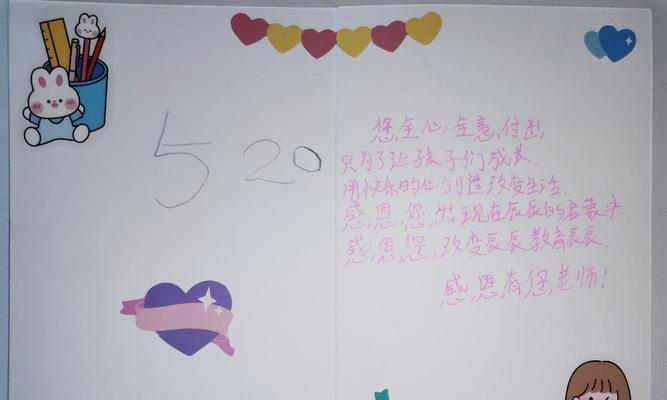 520
您全心,全意,付出,
只为了让孩子们成长.
用快乐的心创造改变生活.
感恩您,出现在辰辰的启蒙中.
感恩您,改变辰辰教育辰辰.
感恩有您老师!